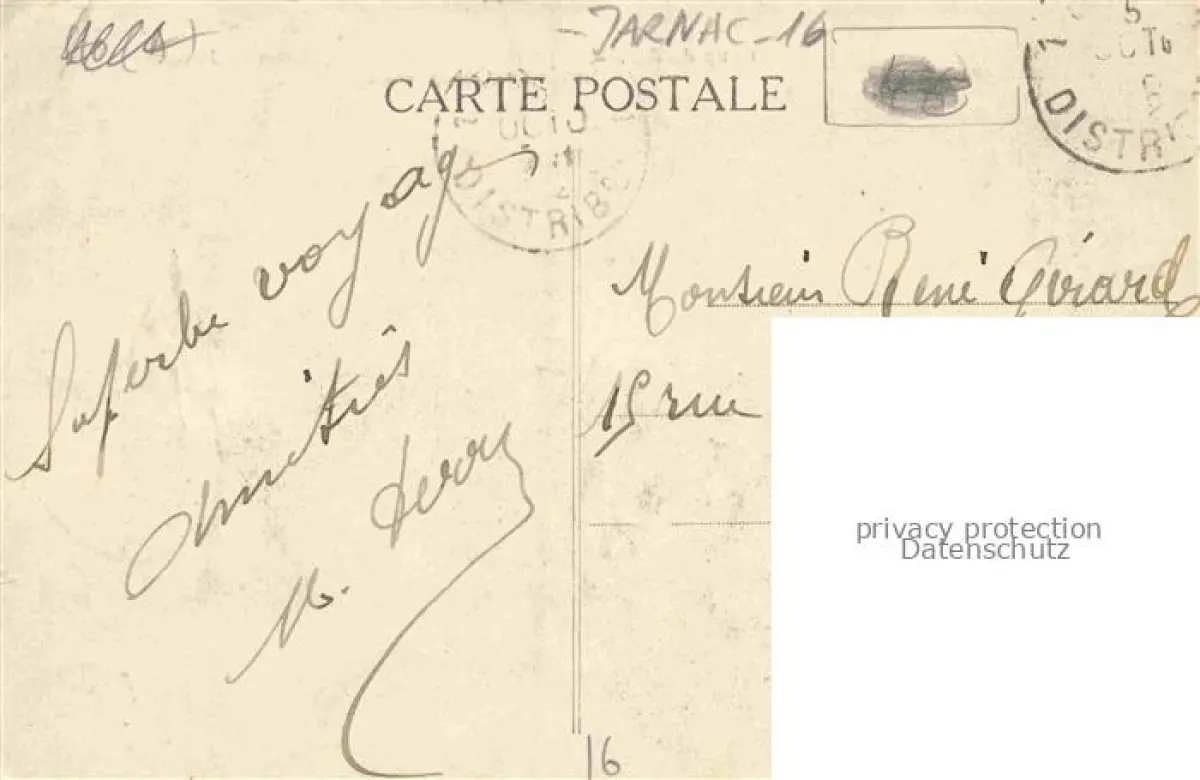 - JARNAC - 16
CARTE POSTALE
5
OCT
DISTR
OCT
DISTRIB
Superbe voyage
Amitiés
M.
Monsieur René Girard
15 rue
privacy protection
Datenschutz
16